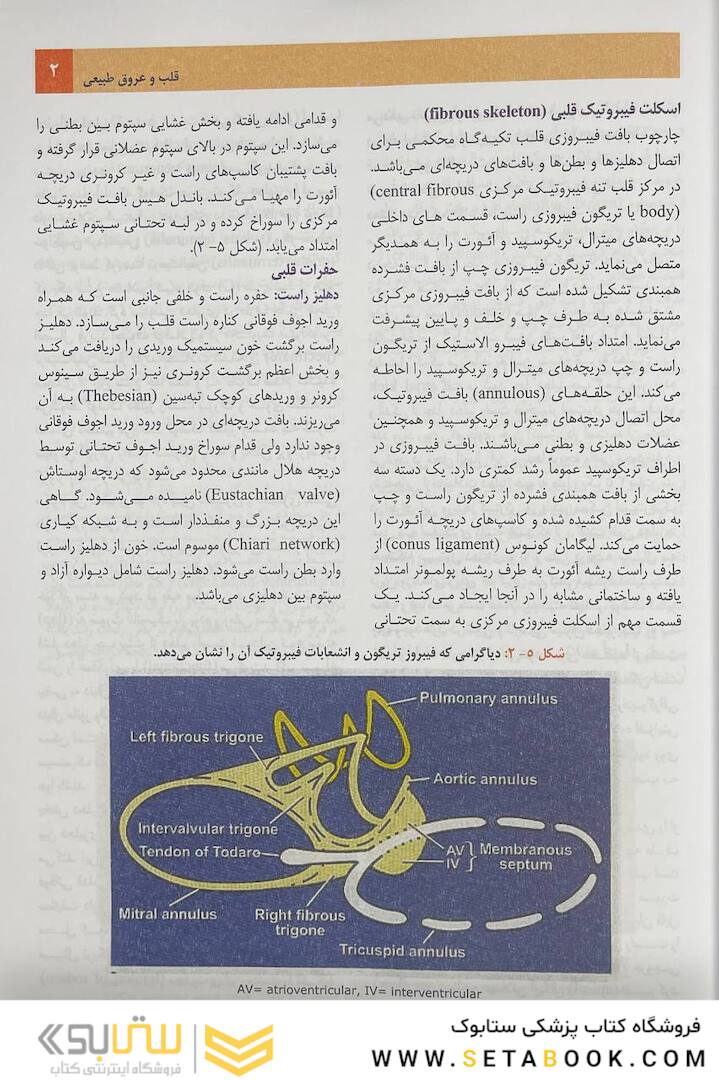 ۲
قلب و عروق طبیعی
اسکلت فیبروتیک قلبی (fibrous skeleton)
چارچوب بافت فیبروزی قلب تکیه‌گاه محکمی برای
اتصال دهلیزها و بطن‌ها و بافت‌های دریچه‌ای می‌باشد.
در مرکز قلب تنه فیبروتیک مرکزی (central fibrous
body) یا تریگون فیبروزی راست، قسمت های داخلی
دریچه‌های میترال، تریکوسپید و آئورت را به همدیگر
متصل می‌نماید. تریگون فیبروزی چپ از بافت فشرده
همبندی تشکیل شده است که از بافت فیبروزی مرکزی
مشتق شده به طرف چپ و خلف و پایین پیشرفت
می‌نماید. امتداد بافت‌های فیبرو الاستیک از تریگون
راست و چپ دریچه‌های میترال و تریکوسپید را احاطه
می‌کند. این حلقه‌های (annulous) بافت فیبروتیک،
محل اتصال دریچه‌های میترال و تریکوسپید و همچنین
عضلات دهلیزی و بطنی می‌باشند. بافت فیبروزی در
اطراف تریکوسپید عموماً رشد کمتری دارد. یک دسته سه
بخشی از بافت همبندی فشرده از تریگون راست و چپ
به سمت قدام کشیده شده و کاسپ‌های دریچه آئورت را
حمایت می‌کند. لیگامان کونوس (conus ligament) از
طرف راست ریشه آئورت به طرف ریشه پولمونر امتداد
یافته و ساختمانی مشابه را در آنجا ایجاد می‌کند. یک
قسمت مهم از اسکلت فیبروزی مرکزی به سمت تحتانی
و قدامی ادامه یافته و بخش غشایی سپتوم بین بطنی را
می‌سازد. این سپتوم در بالای سپتوم عضلانی قرار گرفته و
بافت پشتیبان کاسپ‌های راست و غیر کرونری دریچه
آئورت را مهیا می‌کند. باندل هیس بافت فیبروتیک
مرکزی را سوراخ کرده و در لبه تحتانی سپتوم غشایی
امتداد می‌یابد. (شکل ۵- ۲).
حفرات قلبی
دهلیز راست: حفره راست و خلفی جانبی است که همراه
ورید اجوف فوقانی کناره راست قلب را می‌سازد. دهلیز
راست برگشت خون سیستمیک وریدی را دریافت می‌کند
و بخش اعظم برگشت کرونری نیز از طریق سینوس
کرونر و وریدهای کوچک تبه‌سین (Thebesian) به آن
می‌ریزند. بافت دریچه‌ای در محل ورود ورید اجوف فوقانی
وجود ندارد ولی قدام سوراخ ورید اجوف تحتانی توسط
دریچه هلال مانندی محدود می‌شود که دریچه اوستاش
(Eustachian valve) نامیده می‌شود. گاهی
این دریچه بزرگ و منفذدار است و به شبکه کیاری
(Chiari network) موسوم است. خون از دهلیز راست
وارد بطن راست می‌شود. دهلیز راست شامل دیواره آزاد و
سپتوم بین دهلیزی می‌باشد.
شکل ۵- ۲: دیاگرامی که فیبروز تریگون و انشعابات فیبروتیک آن را نشان می‌دهد.
Pulmonary annulus
Left fibrous trigone
Aortic annulus
Intervalvular trigone
Tendon of Todaro
AV
IV
Membranous
septum
Mitral annulus
Right fibrous
trigone
Tricuspid annulus
AV= atrioventricular, IV= interventricular
فروشگاه کتاب پزشکی ستابوک
WWW.SETABOOK.COM
ستابوک
فروشگاه اینترنتی کتاب